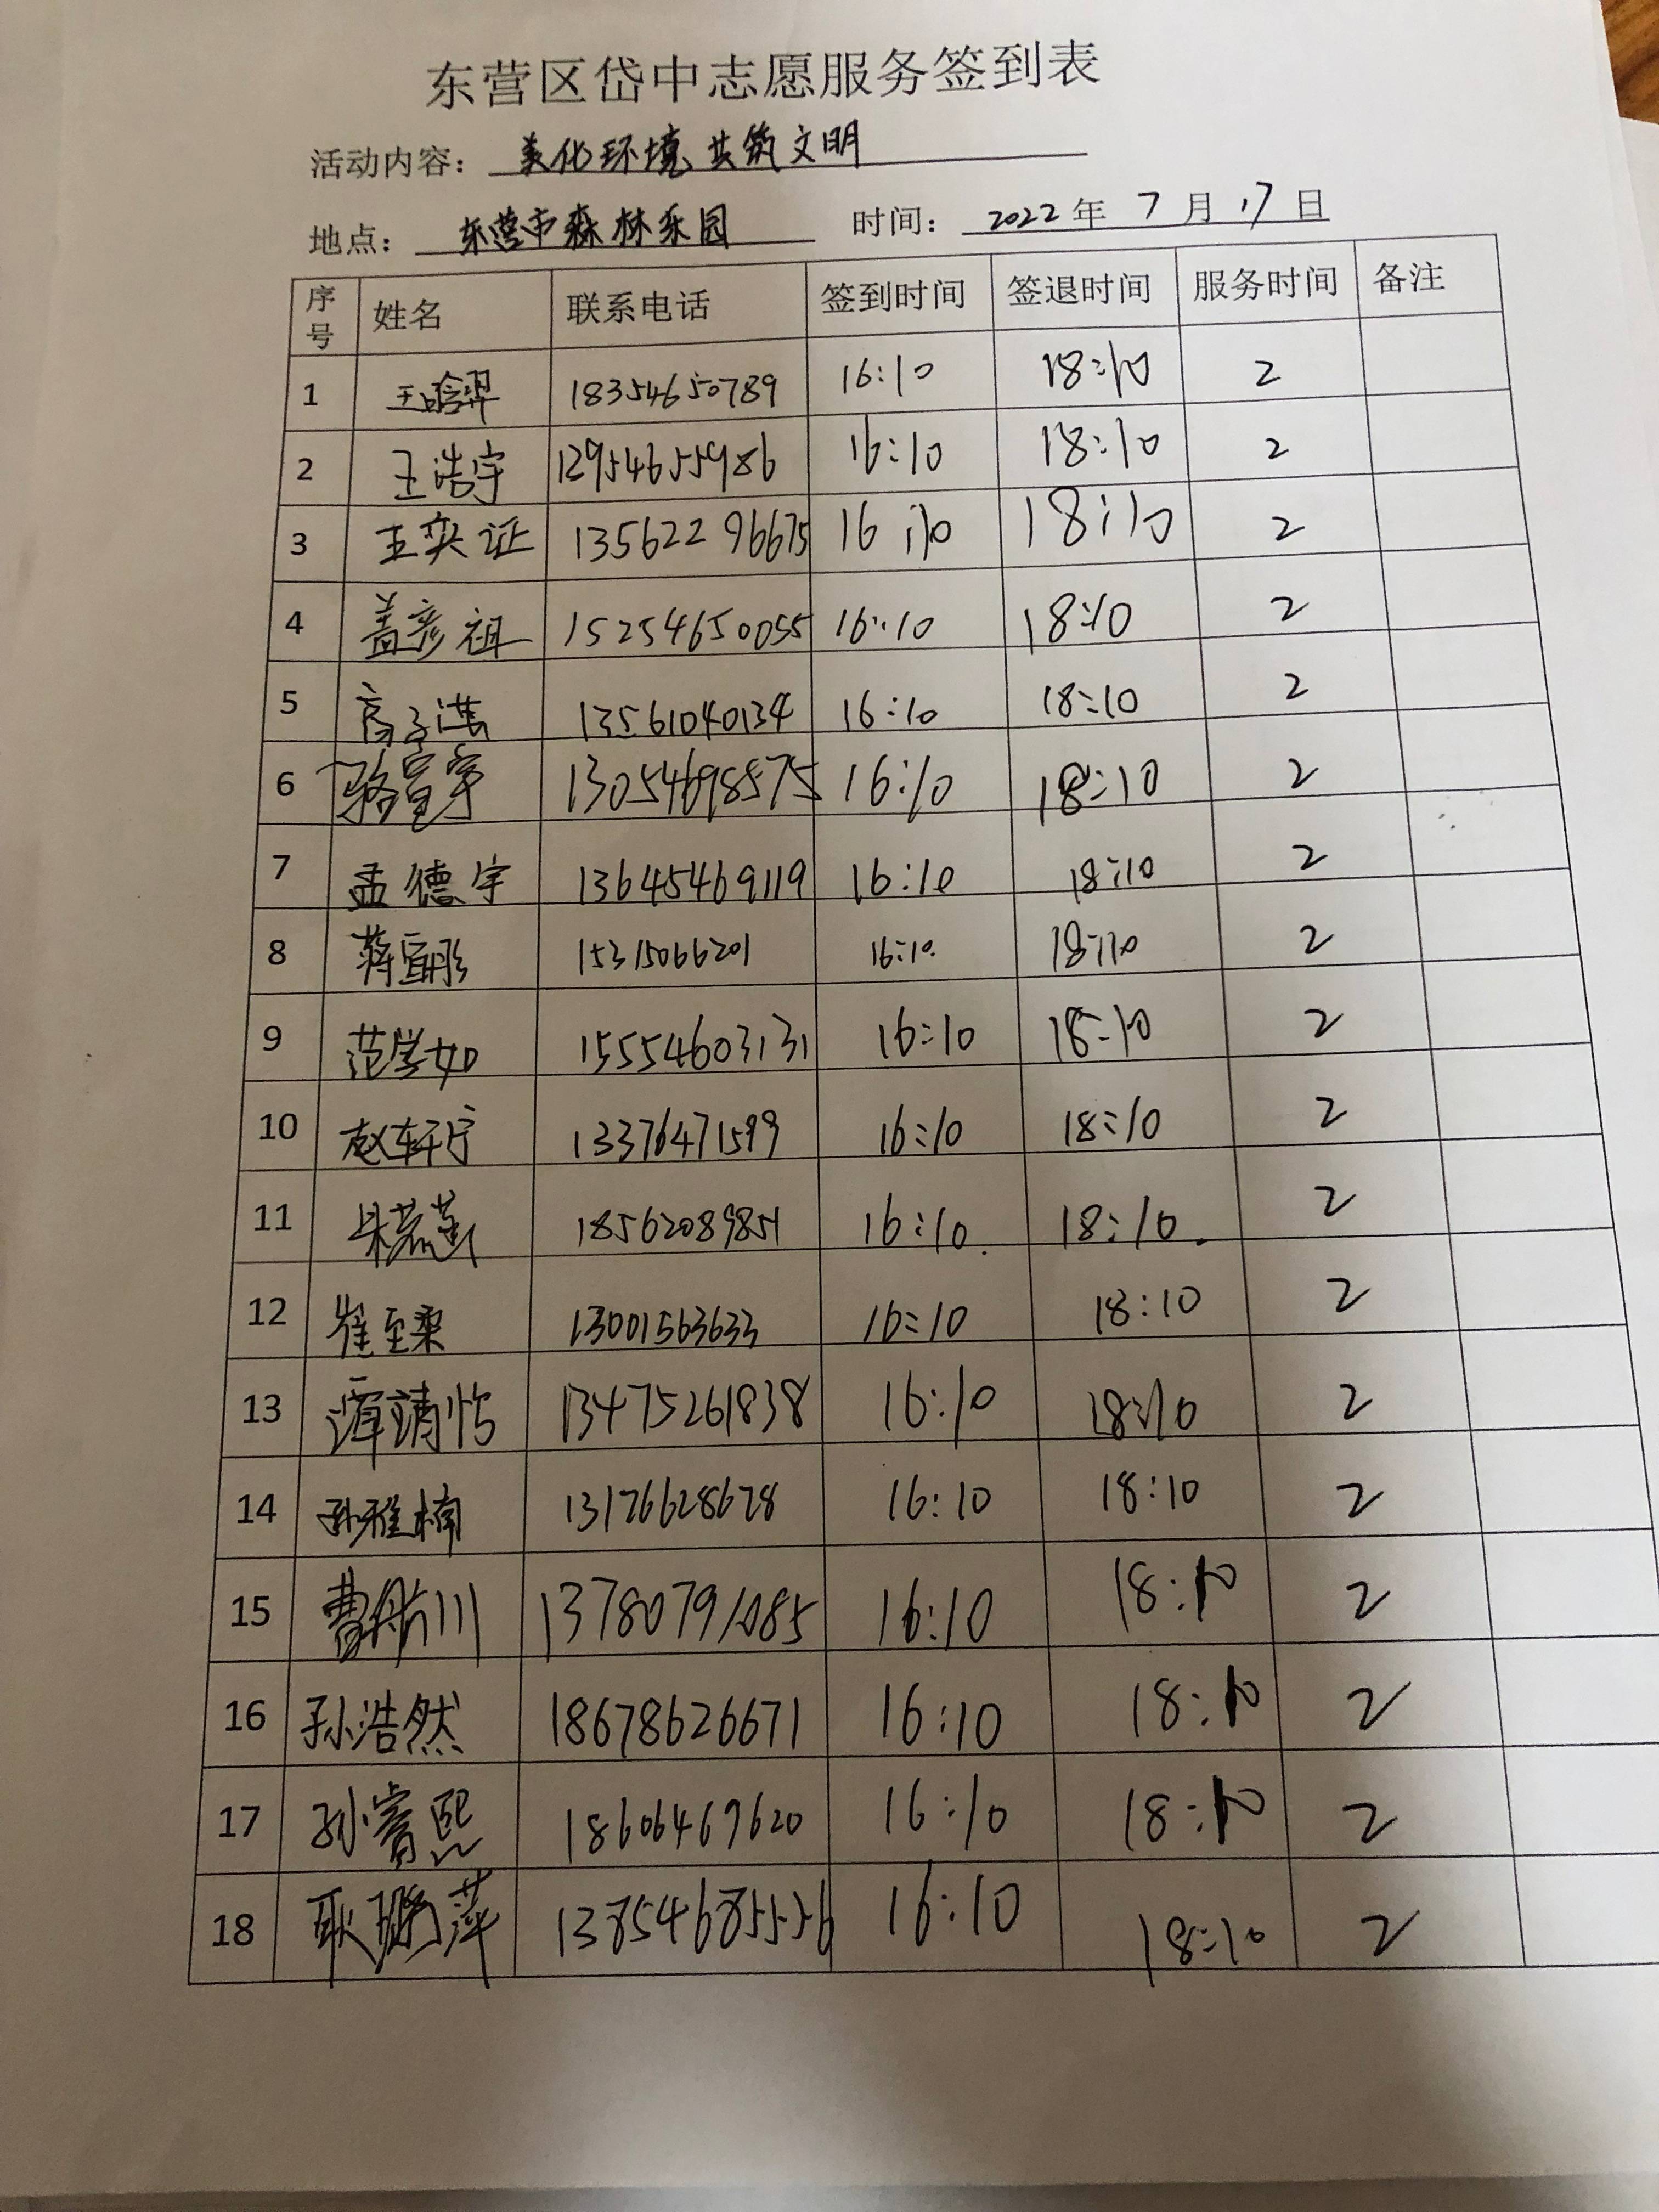 东营区岱中志愿服务签到表
活动内容： 美化环境共筑文明
地点： 东营市森林乐园 时间： 2022年 7月 17日
序号 姓名 联系电话 签到时间 签退时间 服务时间 备注
1 王晗羿 18354650789 16:10 18:10 2
2 王浩宇 12954655986 16:10 18:10 2
3 王奕证 13562296675 16:10 18:10 2
4 盖彦祖 15254650055 16:10 18:10 2
5 高子淇 13561040134 16:10 18:10 2
6 骆宣宇 13054698575 16:10 18:10 2
7 孟德宇 13645469119 16:10 18:10 2
8 蒋宜彤 15315066201 16:10 18:10 2
9 范学如 15554603131 16:10 18:10 2
10 赵轩宁 13376471599 16:10 18:10 2
11 朱 18562089851 16:10 18:10 2
12 崔至柔 13001563633 16:10 18:10 2
13 谭靖怡 13475261838 16:10 18:10 2
14 孙雅楠 13176628678 16:10 18:10 2
15 曹航川 13780791085 16:10 18:10 2
16 孙浩然 18678626671 16:10 18:10 2
17 孙睿熙 18606469620 16:10 18:10 2
18 耿璐萍 13854685556 16:10 18:10 2